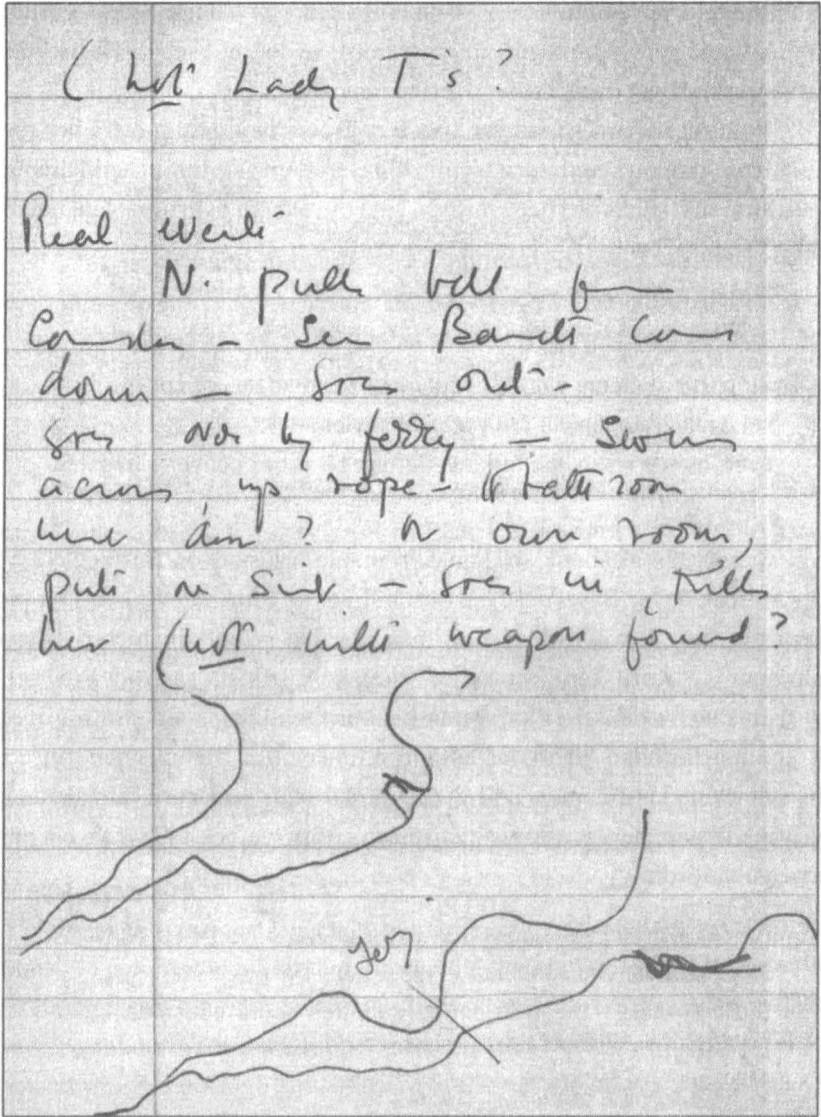 (not Lady T's?
Real events
N. pulls bell from
Corridor - sees Barrett come
down - Goes out -
goes over by ferry - Swims
across, up rope - Bathroom
own room,
puts on suit - Goes in, Kills
her (not with weapon found?
ferry